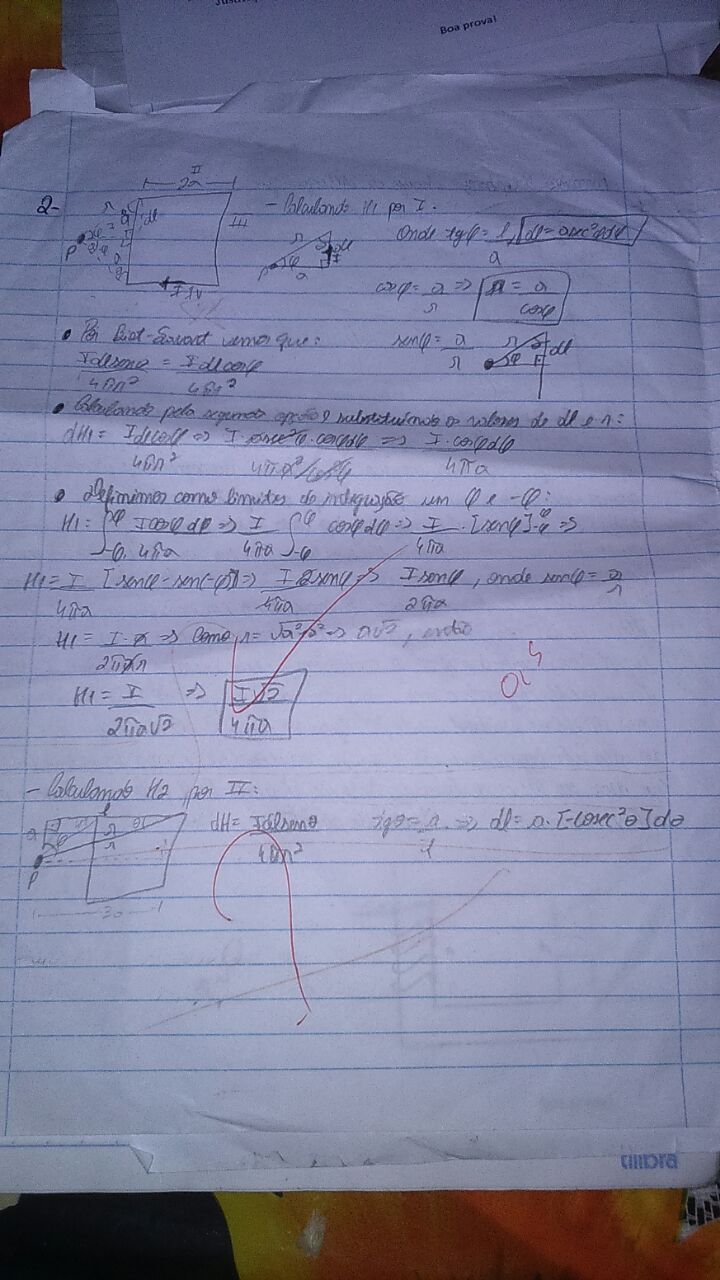 Boa prova!
2-
II
2a
- Calculando H1 por I.
r
dl
III
P
φ
a
IV
r
dl
P
φ
a
Onde tgφ = l/a, dl = a sec²φdφ
cosφ = a/r => r = a/cosφ
• Por Biot-Savart vemos que:
Idlsenθ/4πr² = Idlcosφ/4πr²
senφ = a/r
r
dl
φ
• Calculando pela segunda opção e substituindo os valores de dl e r:
dH1 = Idlcosφ/4πr² => I·asec²φ·cosφdφ/4πa²/cos²φ => I·cosφdφ/4πa
• Definimos como limites de integração um φ e -φ:
H1 = ∫-φ^φ Icosφdφ/4πa => I/4πa ∫-φ^φ cosφdφ => I/4πa · [senφ]-φ^φ =>
H1 = I/4πa [senφ - sen(-φ)] => I 2senφ/4πa => I senφ/2πa, onde senφ = a/r
H1 = I·a/2πar => Como r = √a²+a² => a√2, então
H1 = I/2πa√2 => I√2/4πa
- Calculando H2 por II:
dH = Idlsenθ/4πr²
tgθ = a/l => dl = a·[-cosec²θ]dθ
l
a
r
P
3a
tilibra